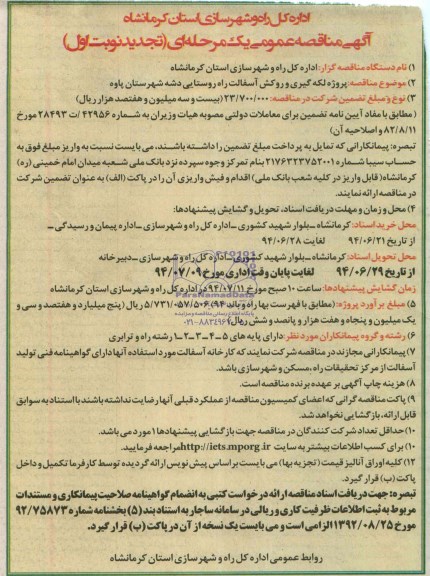 اداره کل راه و شهرسازی استان کرمانشاه
آگهی مناقصه عمومی یک مرحله ای (تجدید نوبت اول)
۱) نام دستگاه مناقصه گزار: اداره کل راه و شهرسازی استان کرمانشاه
۲) موضوع مناقصه: پروژه لکه گیری و روکش آسفالت راه روستایی دشه شهرستان پاوه
۳) نوع و مبلغ تضمین شرکت در مناقصه: ۲۳/۷۰۰/۰۰۰ (بیست و سه میلیون و هفتصد هزار ریال)
(مطابق با مفاد آیین نامه تضمین برای معاملات دولتی مصوبه هیات وزیران به شماره ۴۲۹۵۶/ت ۲۸۴۹۳ مورخ
۸۲/۸/۱۱ و اصلاحیه آن)
تبصره: پیمانکارانی که تمایل به پرداخت مبلغ تضمین را داشته باشند، می بایست نسبت به واریز مبلغ فوق به
حساب سیبا شماره ۲۱۷۶۴۲۳۷۵۲۰۰۱ بنام تمرکز وجوه سپرده نزد بانک ملی شعبه میدان امام خمینی (ره)
کرمانشاه (قابل واریز در کلیه شعب بانک ملی) اقدام و فیش واریزی آن را در پاکت (الف) به عنوان تضمین شرکت
در مناقصه ارائه نمایند.
۴) محل و زمان و مهلت دریافت اسناد، تحویل و گشایش پیشنهادها:
محل خرید اسناد: کرمانشاه ـ بلوار شهید کشوری ـ اداره کل راه و شهرسازی ـ اداره پیمان و رسیدگی ـ
از تاریخ ۹۴/۰۶/۲۱ لغایت ۹۴/۰۶/۲۸
محل تحویل اسناد: کرمانشاه ـ بلوار شهید کشوری ـ اداره کل راه و شهرسازی ـ دبیرخانه
از تاریخ ۹۴/۰۶/۲۹ لغایت پایان وقت اداری مورخ ۹۴/۰۷/۰۹
زمان گشایش پیشنهادها: ساعت ۱۰ صبح مورخ ۹۴/۰۷/۱۱ در اداره کل راه و شهرسازی استان کرمانشاه
۵) مبلغ برآورد پروژه: (مطابق با فهرست بها راه و باند ۹۴) ۵/۷۳۱/۰۵۷/۵۰۶ ریال (پنج میلیارد و هفتصد و سی و
یک میلیون و پنجاه و هفت هزار و پانصد و شش ریال)
۶) رشته و گروه پیمانکاران مورد نظر: دارای پایه های ۵ـ۴ـ۳ـ۲ـ۱ رشته راه و ترابری
۷) پیمانکارانی مجازند در مناقصه شرکت نمایند که کارخانه آسفالت مورد استفاده آنها دارای گواهینامه فنی تولید
آسفالت از مرکز تحقیقات راه، مسکن و شهرسازی باشد.
۸) هزینه چاپ آگهی بر عهده برنده مناقصه است.
۹) پاکت مناقصه گرانی که اعضای کمیسیون مناقصه از عملکرد قبلی آنها رضایت نداشته باشند با استناد به سوابق
قابل ارائه، بازگشایی نخواهد شد.
۱۰) حداقل تعداد شرکت کنندگان در مناقصه جهت بازگشایی پیشنهادها ۱ مورد می باشد.
۱۰) برای کسب اطلاعات بیشتر به سایت http://iets.mporg.ir مراجعه فرمایید.
۱۲) کلیه اوراق آنالیز قیمت (تجزیه بها) می بایست بر اساس پیش نویس ارائه گردیده توسط کارفرما تکمیل و داخل
پاکت (ب) قرار گیرد.
تبصره: جهت دریافت اسناد مناقصه ارائه درخواست کتبی به انضمام گواهینامه صلاحیت پیمانکاری و مستندات
مربوط به ثبت اطلاعات ظرفیت کاری و ریالی در سامانه ساجار به استناد بند (۵) بخشنامه شماره ۹۲/۷۵۸۷۳
مورخ ۱۳۹۲/۰۸/۲۵ الزامی است و می بایست یک نسخه از آن در پاکت (ب) قرار گیرد.
روابط عمومی اداره کل راه و شهرسازی استان کرمانشاه